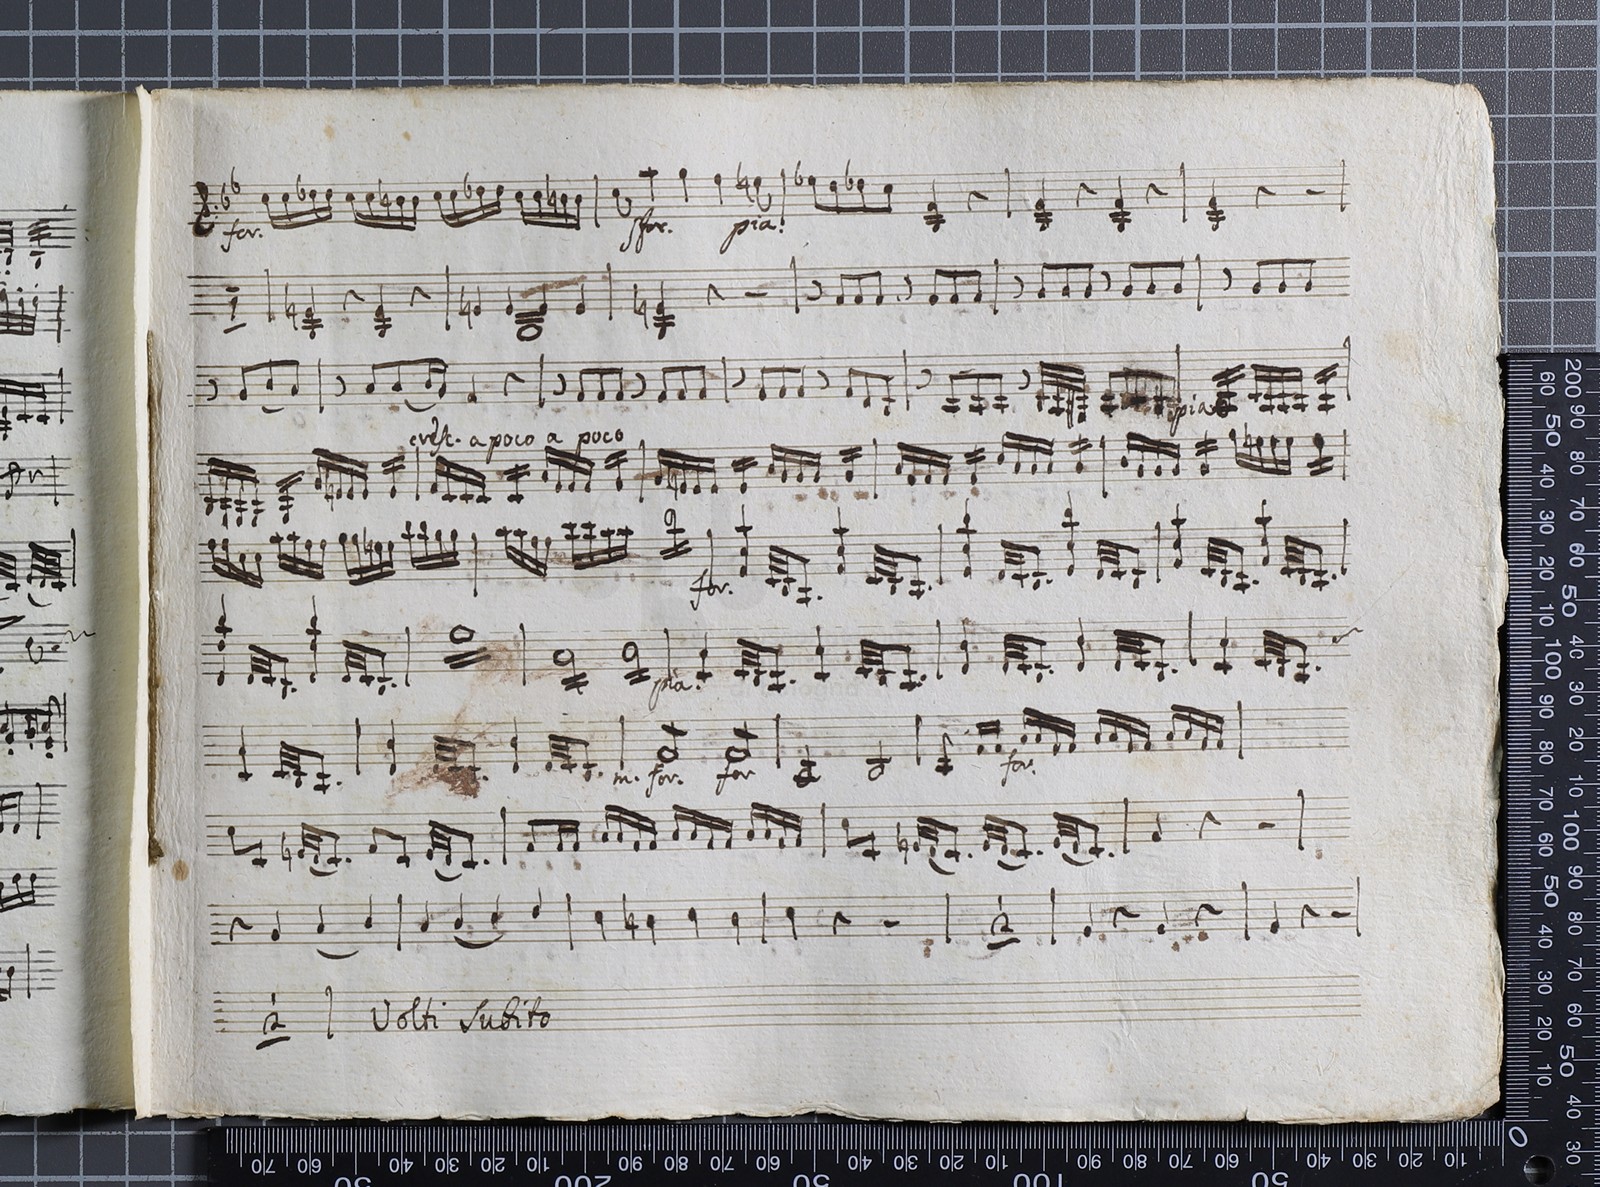 for. sfor. pia:
pia
cresc. a poco a poco
for.
pia:
m. for. for for.
2
2 Volti Subito